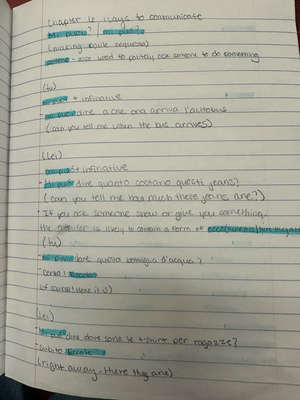 Chapter 6 ways to communicate
Mi puoi? / mi può?
(making polite requests)
- also used to politely ask someone to do something
(tu)
mi puoi + infinative
- mi puoi dire a che ora arriva l'autobus
(can you tell me when the bus arrives)
(Lei)
mi può + infinative
- Mi può dire quanto costano questi jeans?
(can you tell me how much there jeans are?)
* If you ask someone show or give you something,
the is likely to contain a form of ecco
(tu)
Mi puoi dare quella bottiglia d'acqua?
- Certo! Eccola
(of course! Here it is)
(Lei)
- Mi può dire dove sono le t-shirt per ragazze?
- Subito Eccole
(right away. There they are)